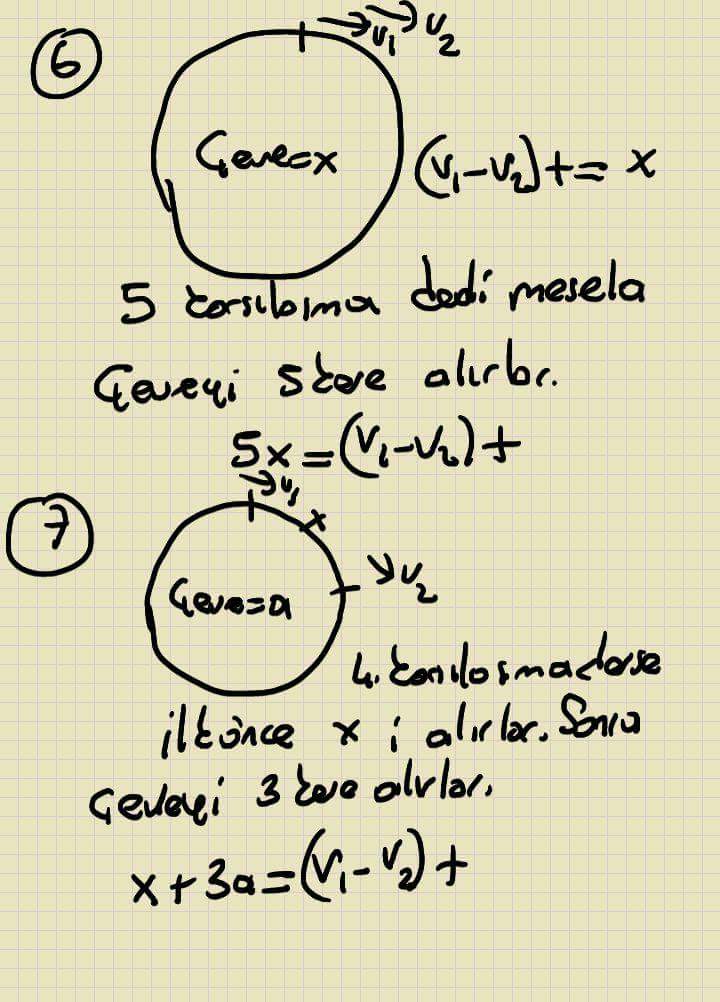 6
v₁ v₂
Çevre=x
(v₁-v₂)t = x
5 karşılaşma dedi mesela
Çevreyi 5 kere alırlar.
5x=(v₁-v₂)t
7
v₁
x
Çevre=a
v₂
4. karşılaşma derse
ilk önce x i alırlar. Sonra
Çevreyi 3 kere alırlar.
x+3a=(v₁-v₂)t